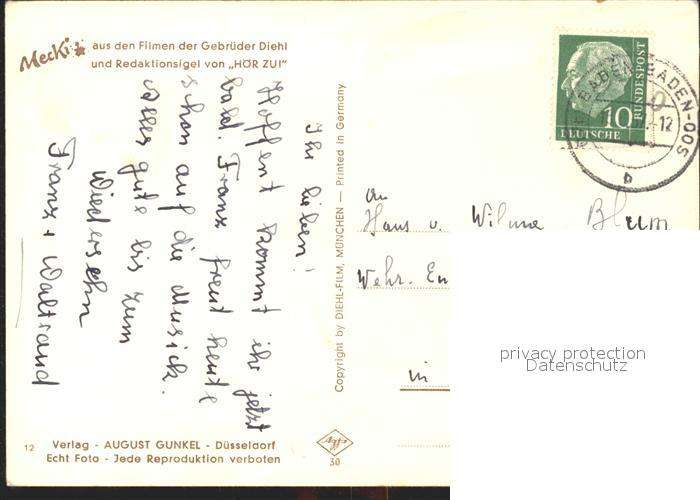 Mecki aus den Filmen der Gebrüder Diehl
und Redaktionsigel von „HÖR ZU!"
Ihr lieben!
Hoffent kommt ihr jetzt
bald. Franz freut heute
schon auf die Musick.
Alles gute bis zum
Wiedersehn
Franz + Waltraud
Copyright by DIEHL-FILM, MÜNCHEN — Printed in Germany
BADEN-OOS
-12
b
10
DEUTSCHE
BUNDESPOST
An
Hans u. Wilma Blum
Wehr. En
in
privacy protection
Datenschutz
12 Verlag - AUGUST GUNKEL - Düsseldorf
Echt Foto - Jede Reproduktion verboten
Agfa
30